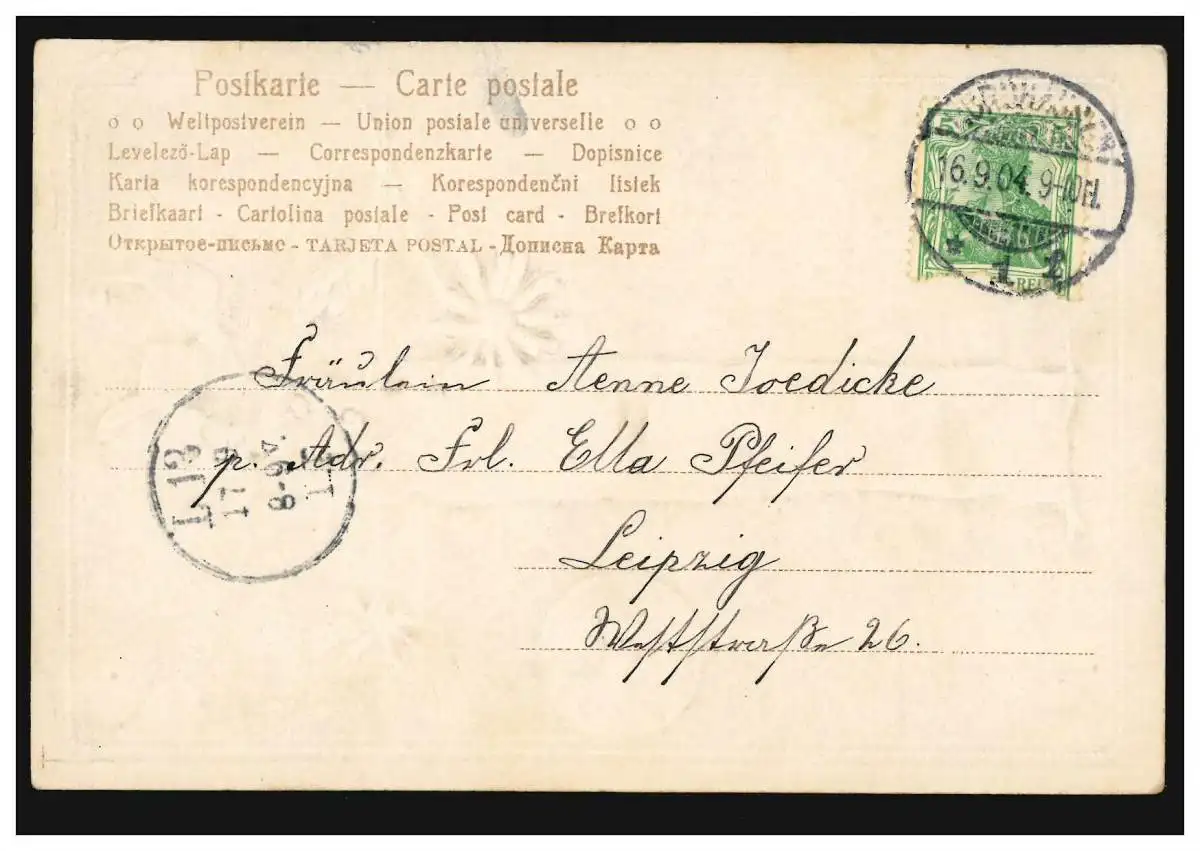 Postkarte — Carte postale
o o Weltpostverein — Union postale universelle o o
Levelező-Lap — Correspondenzkarte — Dopisnice
Karta korespondencyjna — Korespondenční lístek
Briefkaart - Cartolina postale - Post card - Brefkort
Открытое-письмо - TARJETA POSTAL - Дописна Карта
16.9.04. 9-10N.
* 1 f
REICH
Fräulein Aenne Joedicke
p. Adr. Frl. Ella Pfeifer
Leipzig
Weststraße 26.
L 13
17 9
8-9 V.